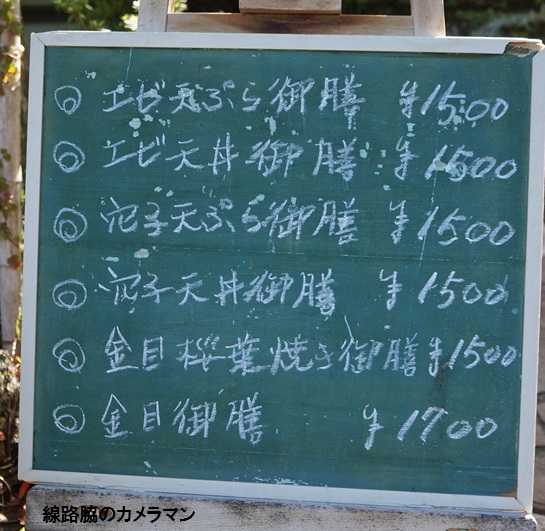 ◎ エビ天ぷら御膳 ¥1500
◎ エビ天丼御膳 ¥1500
◎ 穴子天ぷら御膳 ¥1500
◎ 穴子天丼御膳 ¥1500
◎ 金目桜葉焼き御膳 ¥1500
◎ 金目御膳 ¥1700
線路脇のカメラマン